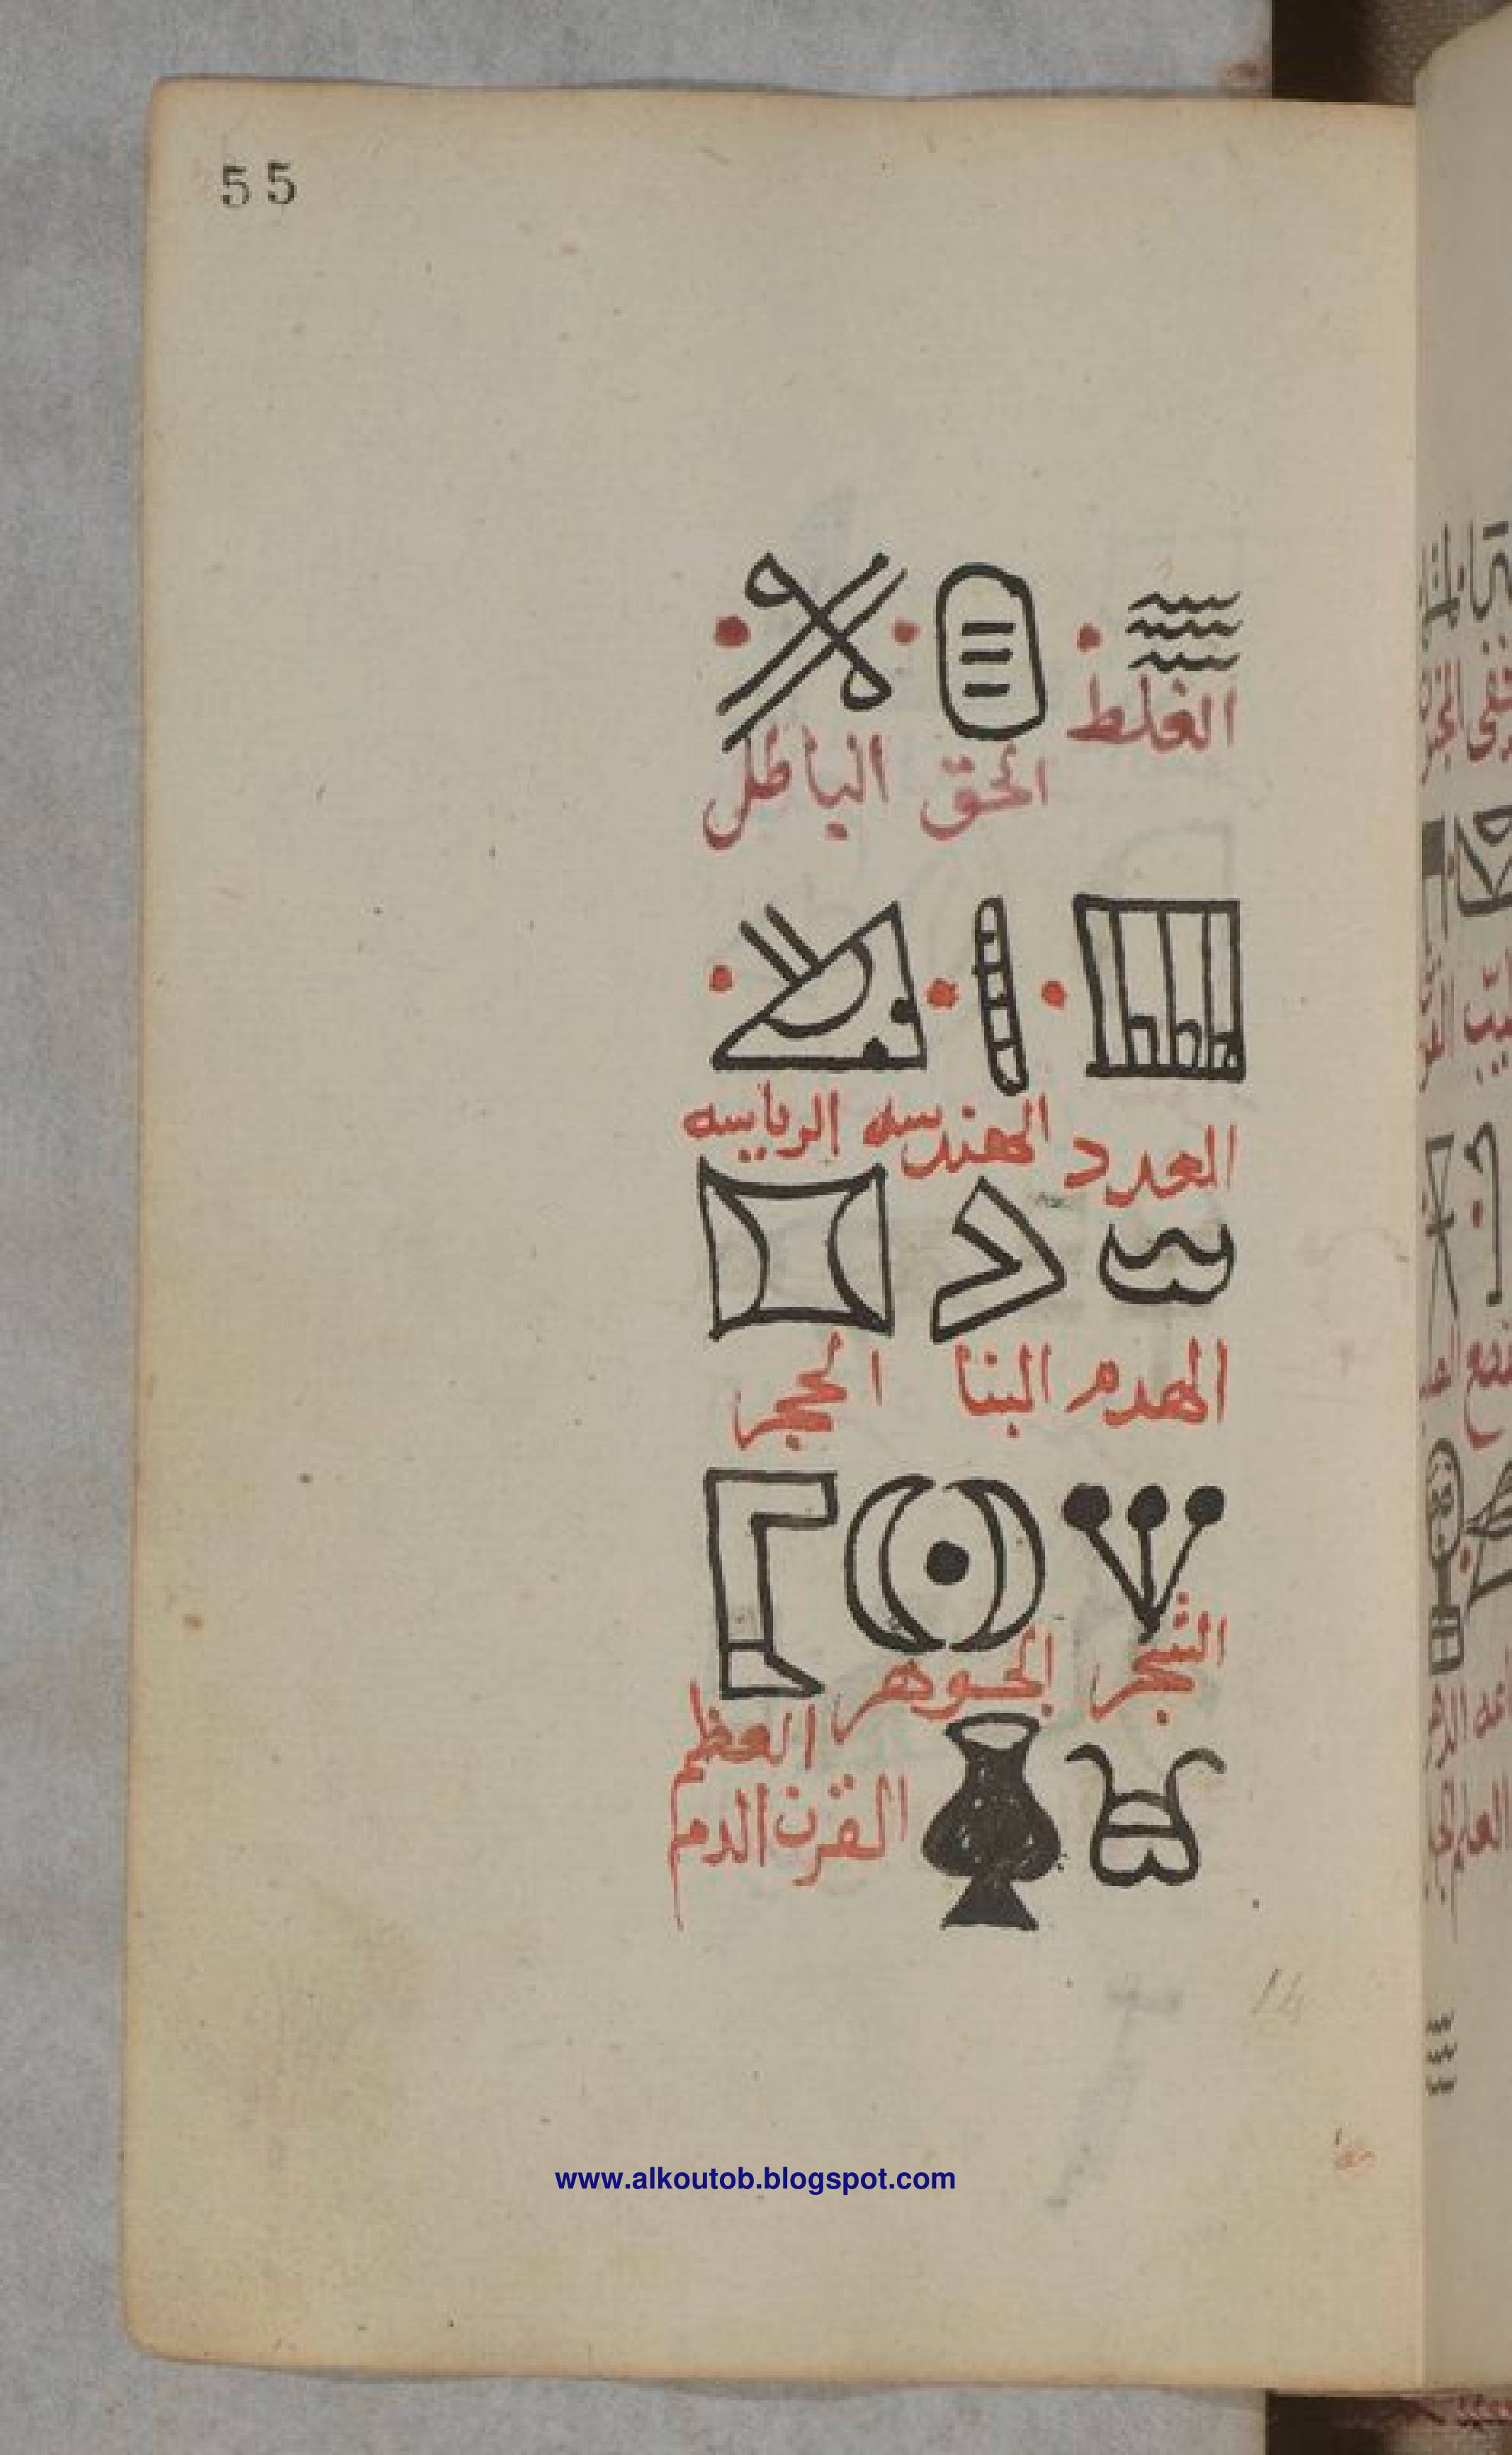 55
الغلط الحق الباطل
العدد الهندسه الرياسه
الهدم البنا الحجر
الشجر الجوهر العظم
القرن الدم
14
www.alkoutob.blogspot.com